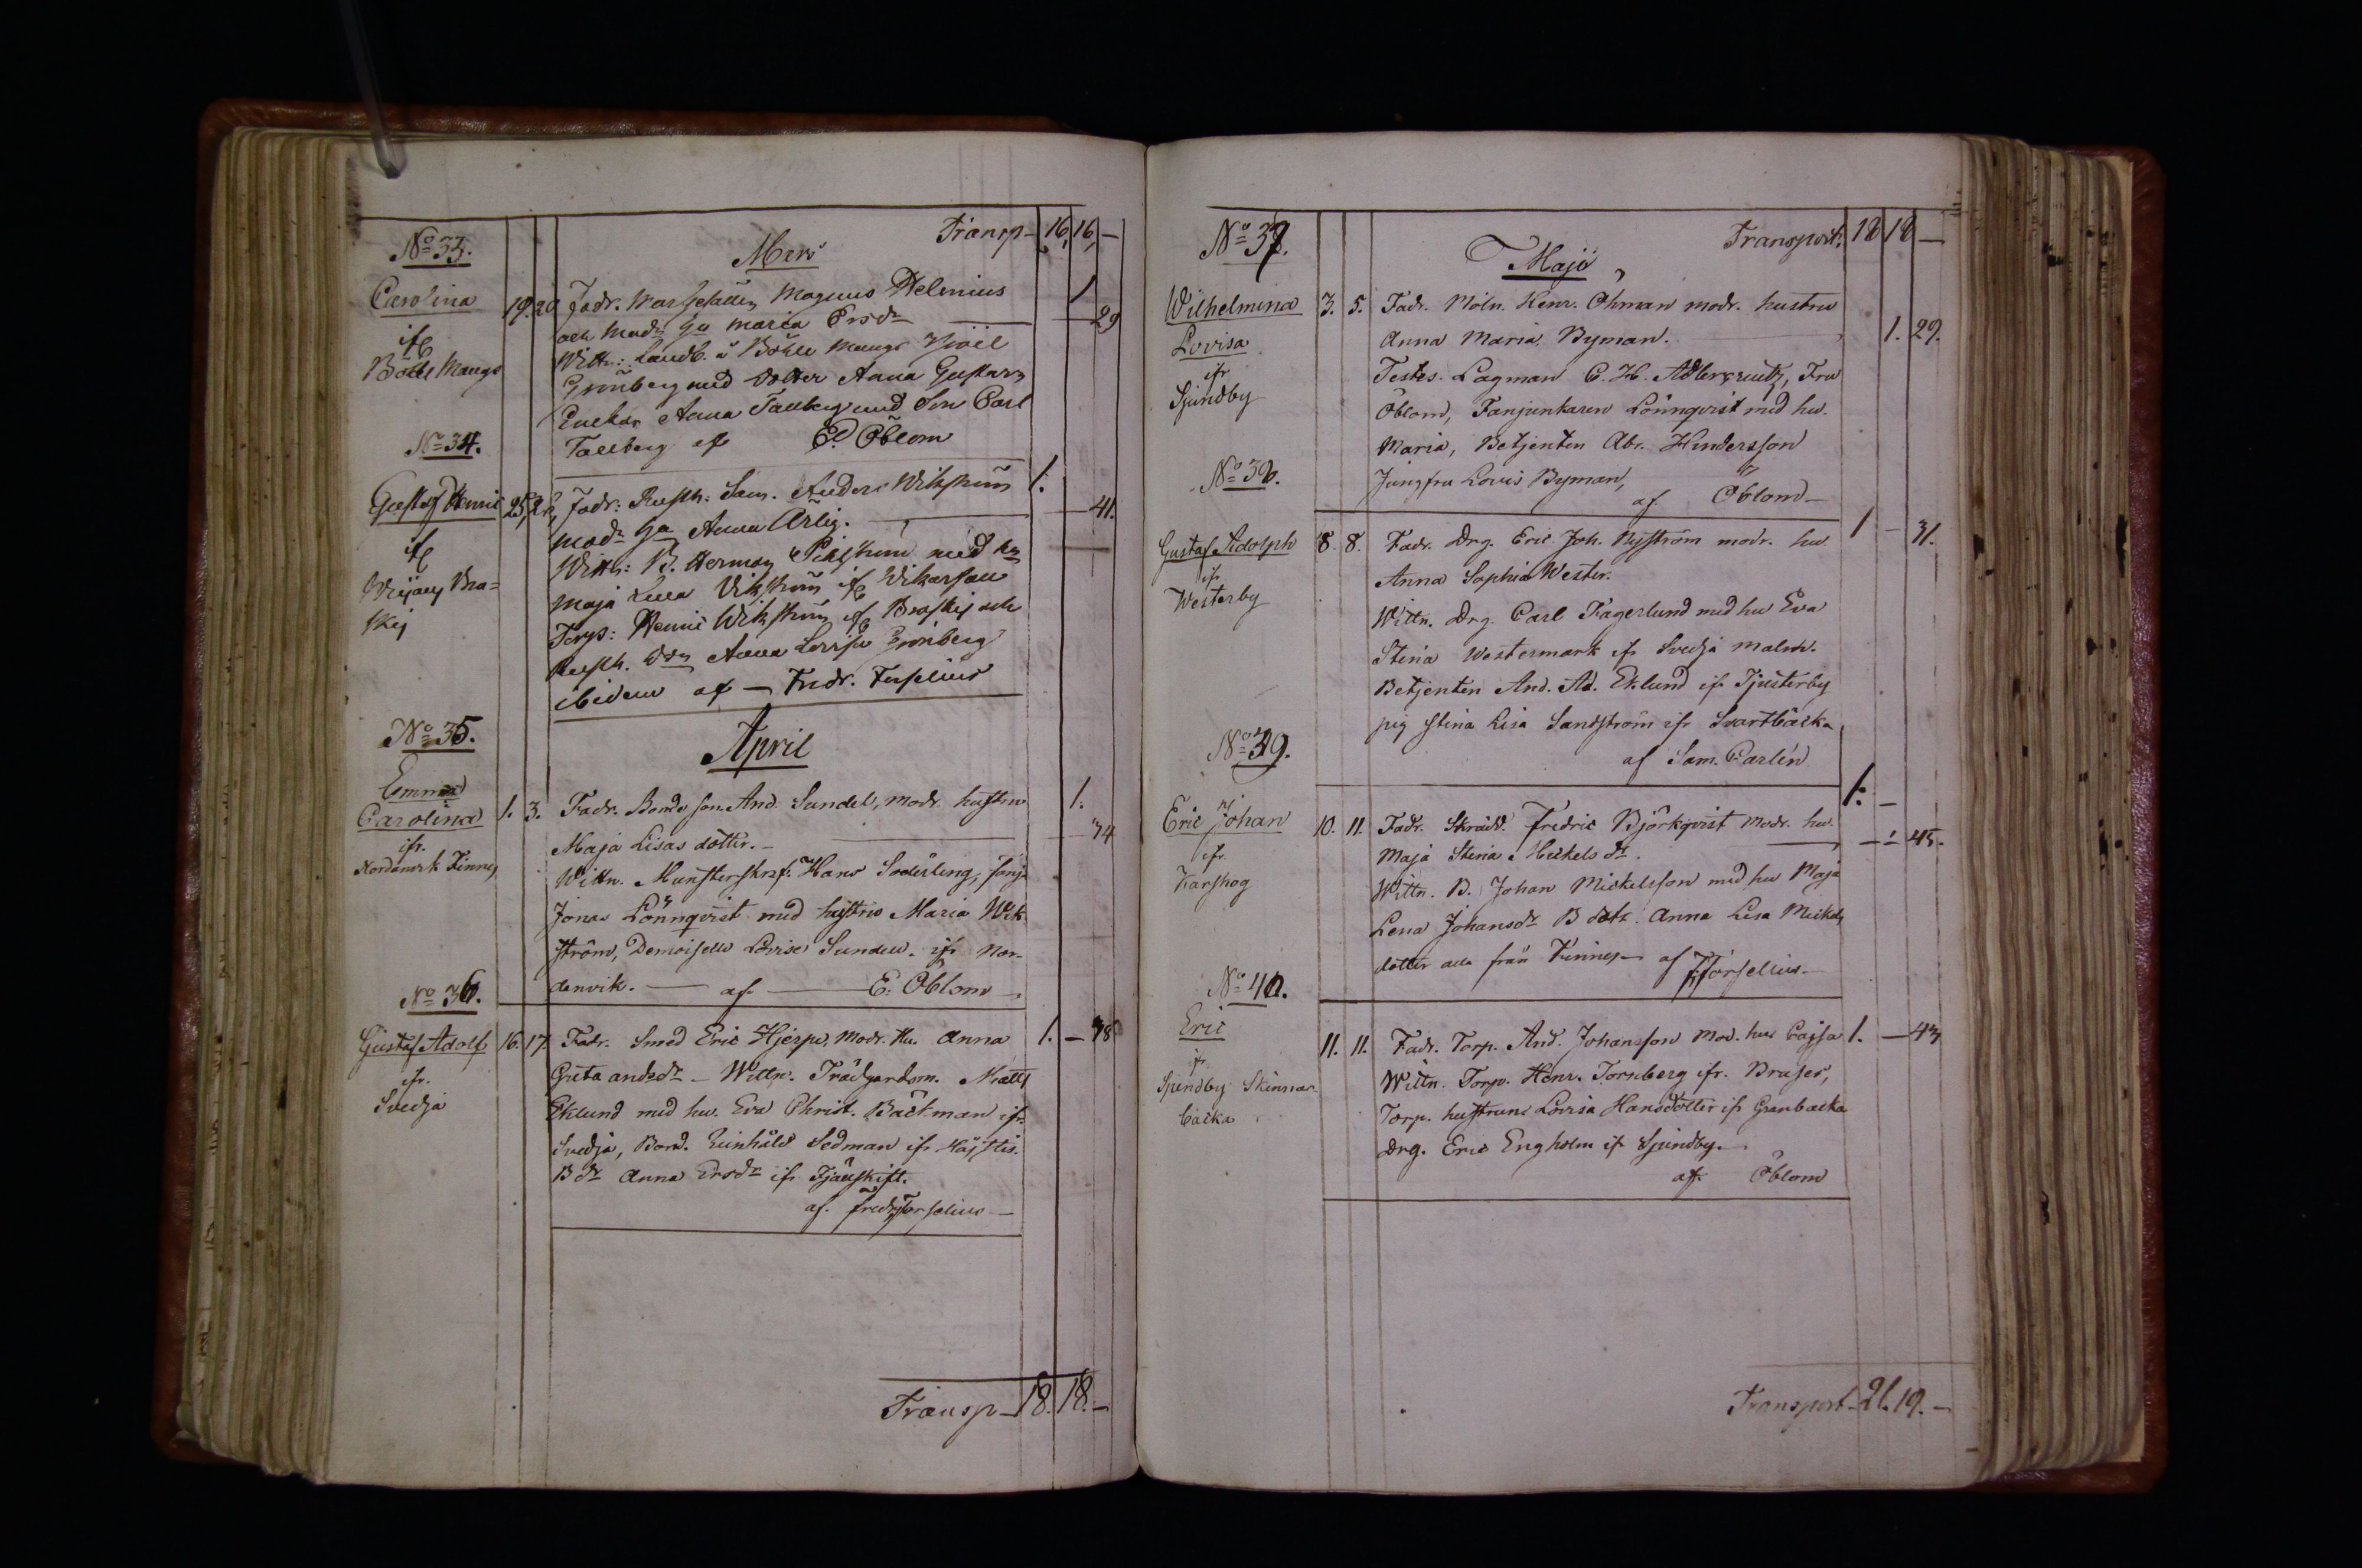 Transp – 16, 16, –
Mars
No 33.
Carolina 19. 20 Fadr. Magnus Helenius
ifr och Modr. Maria Ersdr 1 29
Böhle Mangs Wittn: Landb. å Böhle Mangs
Grönberg med dotter Anna
Enckan Anna Tallberg med Son Carl
Tallberg af E. Öblom
No 34.
Gustaf Henric 25, 26, Fadr: Rusth: Son. Anders Wikström 1. 41.
ifr modr Anna Arlig.
Wittn: B. Herman med
Maja Lena Wikström ifr Wikarskau
Torp: Henric Wikström ifr Braskij och
Rusth. Anna Lovisa Grönberg
ibidem af – Fredr. Forselius
No 35.
April
Emma
Carolina 1. 3. Fadr. Bonde son And. Sundel, modr hustru 1. 34
ifr. Maja Lisas dotter. –
Nordanvik Finnes Wittn. Munsterskrif. Hans Söderling,
Jonas Lönnqvist med hustru Maria Wik
ström, Demoiselle Lovise Sundell. ifr Nor-
danvik. — af — E. Öblom
No 36.
Gustaf Adolf 16. 17. Fadr. Smed Eric Hjerpe, Modr. Hu. Anna 1. – 38
ifr. Greta andsdr – Wittn. Trädgardsm. Matts
Svedja Eklund med hu. Eva Christ. Bäckman ifr.
Svedja, Bond. Reinhold Sedman ifr
B dr Anna Ersdr ifr Fjälskift.
af. fredr. Forselius –
Transp – 18. 18. –
No 37. Transport: 18 18 –
Majo
Wilhelmina 3. 5. Fadr. Möln. Henr. Öhman modr. hustru
Lovisa Anna Maria Byman. 1. 29.
ifr Testes. Lagman C. H. Adlercreutz, Fru
Sjundby Öblom, Fanjunkaren Lönnqvist med hu.
Maria, Betjenten Abr. Hindersson
Jungfru Lovis Byman,
af Öblom –
No 38.
Gustaf Adolph 8. 8. Fadr. Drg. Eric Joh. Nyström modr. hu 1 – 31.
ifr Anna Sophia Wester.
Westerby Wittn. Drg. Carl Fagerlund med hu Eva
Stina Westermark ifr Svedja malm.
Betjenten And. Ad. Eklund ifr Tjusterby
pig Stina Lisa Sandström ifr Svartbäcka
af Sam. Carlén
No 39.
Eric Johan 10. 11. Fadr. Skrädd. Fredric Björkqvist Modr. hu. 1. –
ifr Maja Stina Mickelsdr. 45.
Karskog Wittn. B. Johan Mickelsson med hu Maja
Lena Johansdr B dotr. Anna Lisa Mickels
dotter alla från Finnes – af F Forselius –
No 40.
Eric 11. 11. Fadr. Torp. And. Johansson Mod. hu Cajsa 1. – 43
ifr Wittn. Torp. Henr. Tornberg ifr. Brases,
Sjundby Skinnar Torp. hustrun Lovisa Hansdotter ifr Granbacka
bäcka Drg. Eric Engholm ifr Sjundby.
af. Öblom
Transport – 21. 19. –